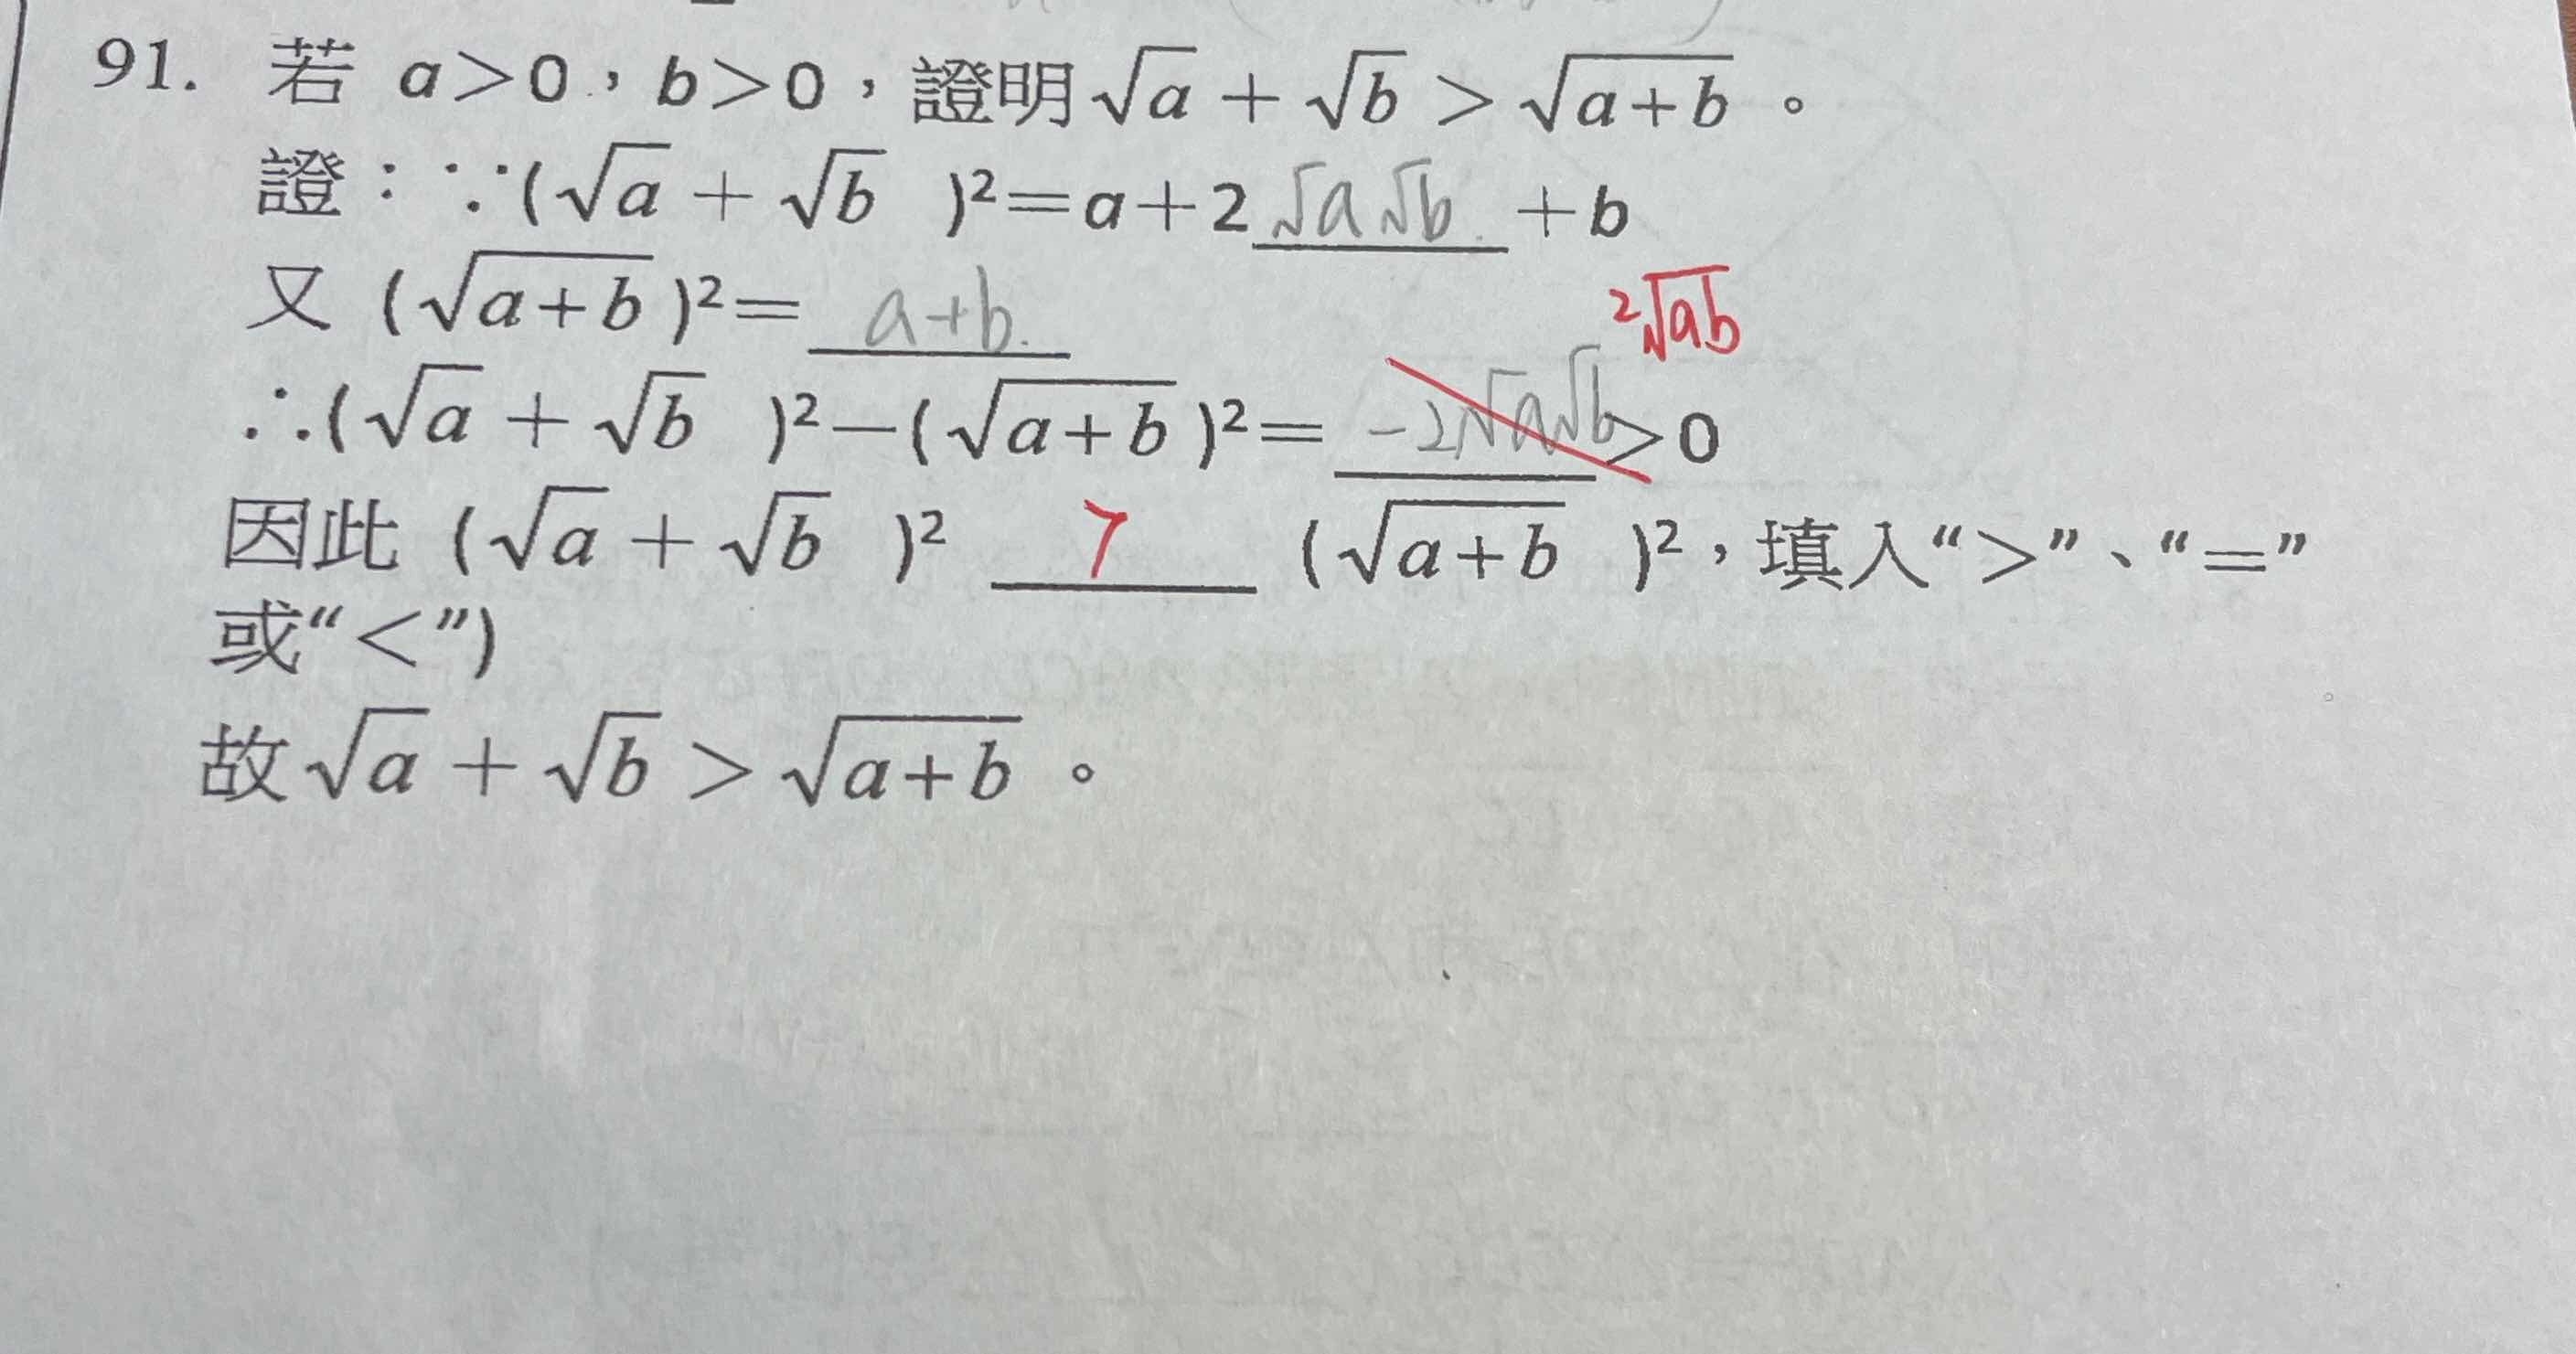 91. 若 a>0，b>0，證明√a + √b > √(a+b) 。
證：∵(√a + √b )²=a+2 √a√b +b
又 (√(a+b) )²= a+b
2√ab
∴(√a + √b )²−(√(a+b) )²= -2√a√b >0
因此 (√a + √b )² > (√(a+b) )²，填入“>”、“=”
或“<”)
故√a + √b > √(a+b) 。